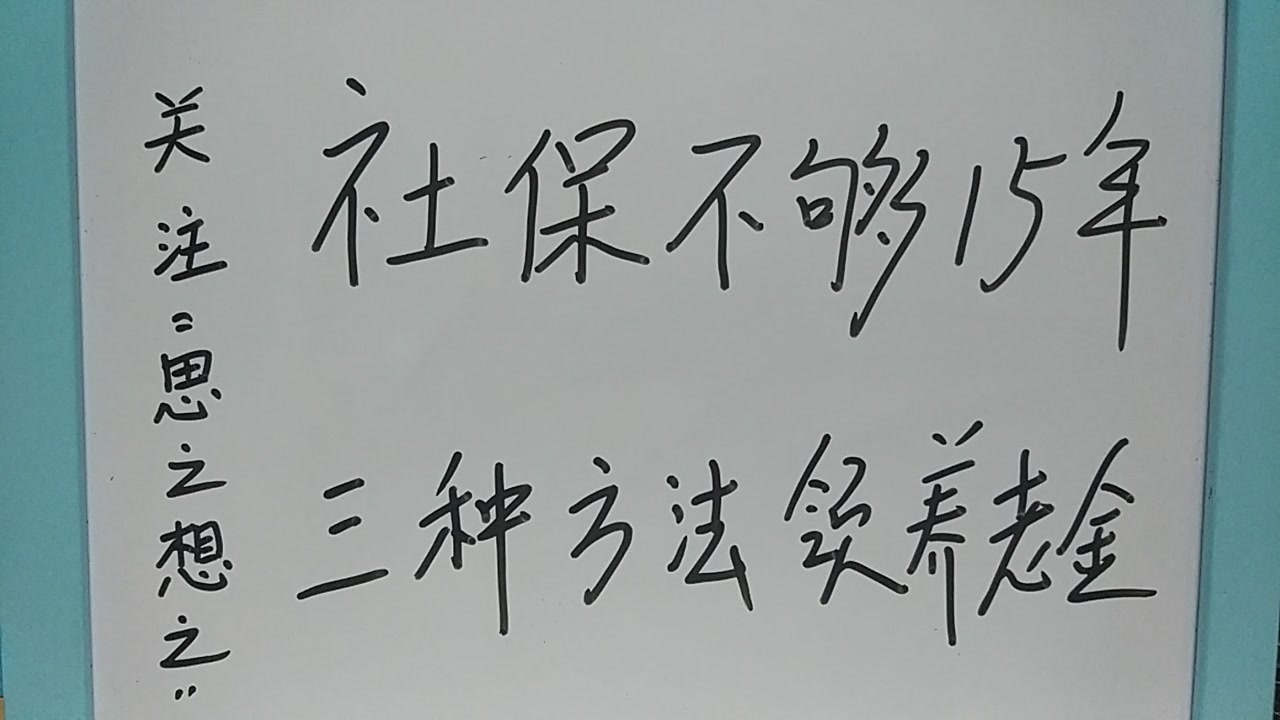 社保不够15年
三种方法领养老金
关注"思之想之"